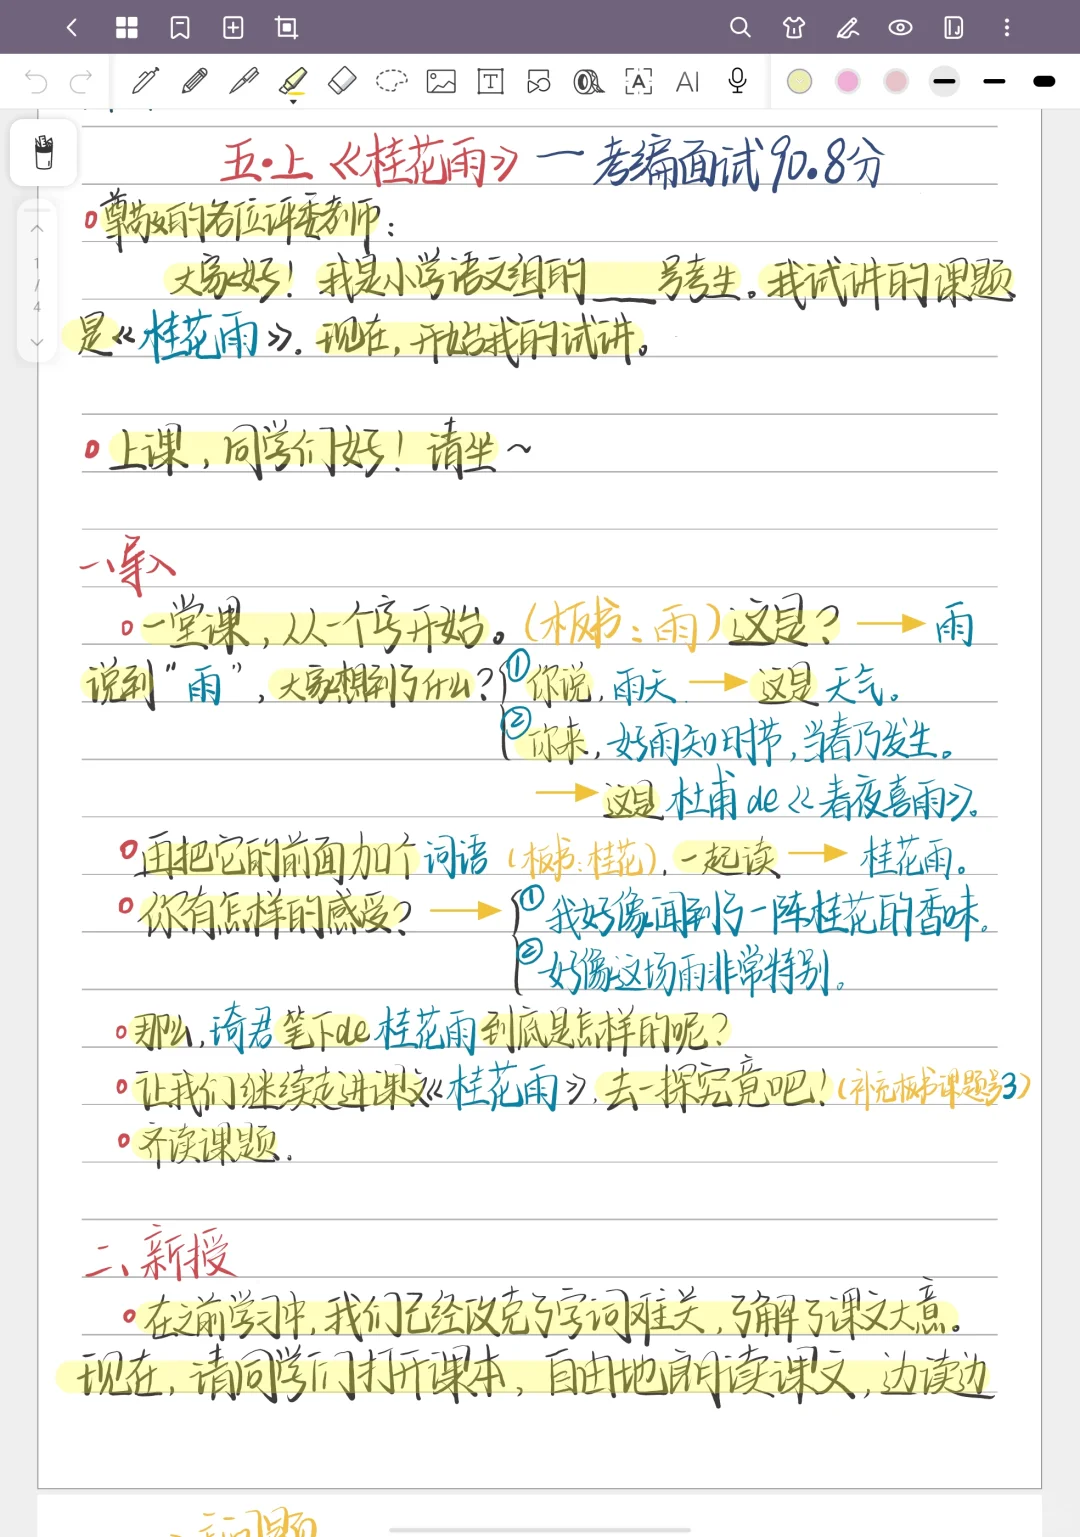 五·上《桂花雨》一考编面试90.8分
尊敬的各位评委老师:
大家好！我是小学语文组的___号考生。我试讲的课题
是《桂花雨》。现在，开始我的试讲。
上课，同学们好！请坐～
一、导入
一堂课，从一个字开始。(板书：雨)这是？→雨
说到"雨"，大家想到了什么？①你说，雨天→这是天气。
②你来，好雨知时节，当春乃发生。
→这是杜甫de《春夜喜雨》。
再把它的前面加个词语(板书:桂花)，一起读→桂花雨。
你有怎样的感受？→①我好像闻到了一阵桂花的香味。
②好像这场雨非常特别。
那么，琦君笔下de桂花雨到底是怎样的呢？
让我们继续走进课文《桂花雨》，去一探究竟吧！(补充板书课题号3)
齐读课题.
二、新授
在之前学习中，我们已经攻克了字词难关，了解了课文大意。
现在，请同学们打开课本，自由地朗读课文，边读边
问题
1
/
4
T
A
AI